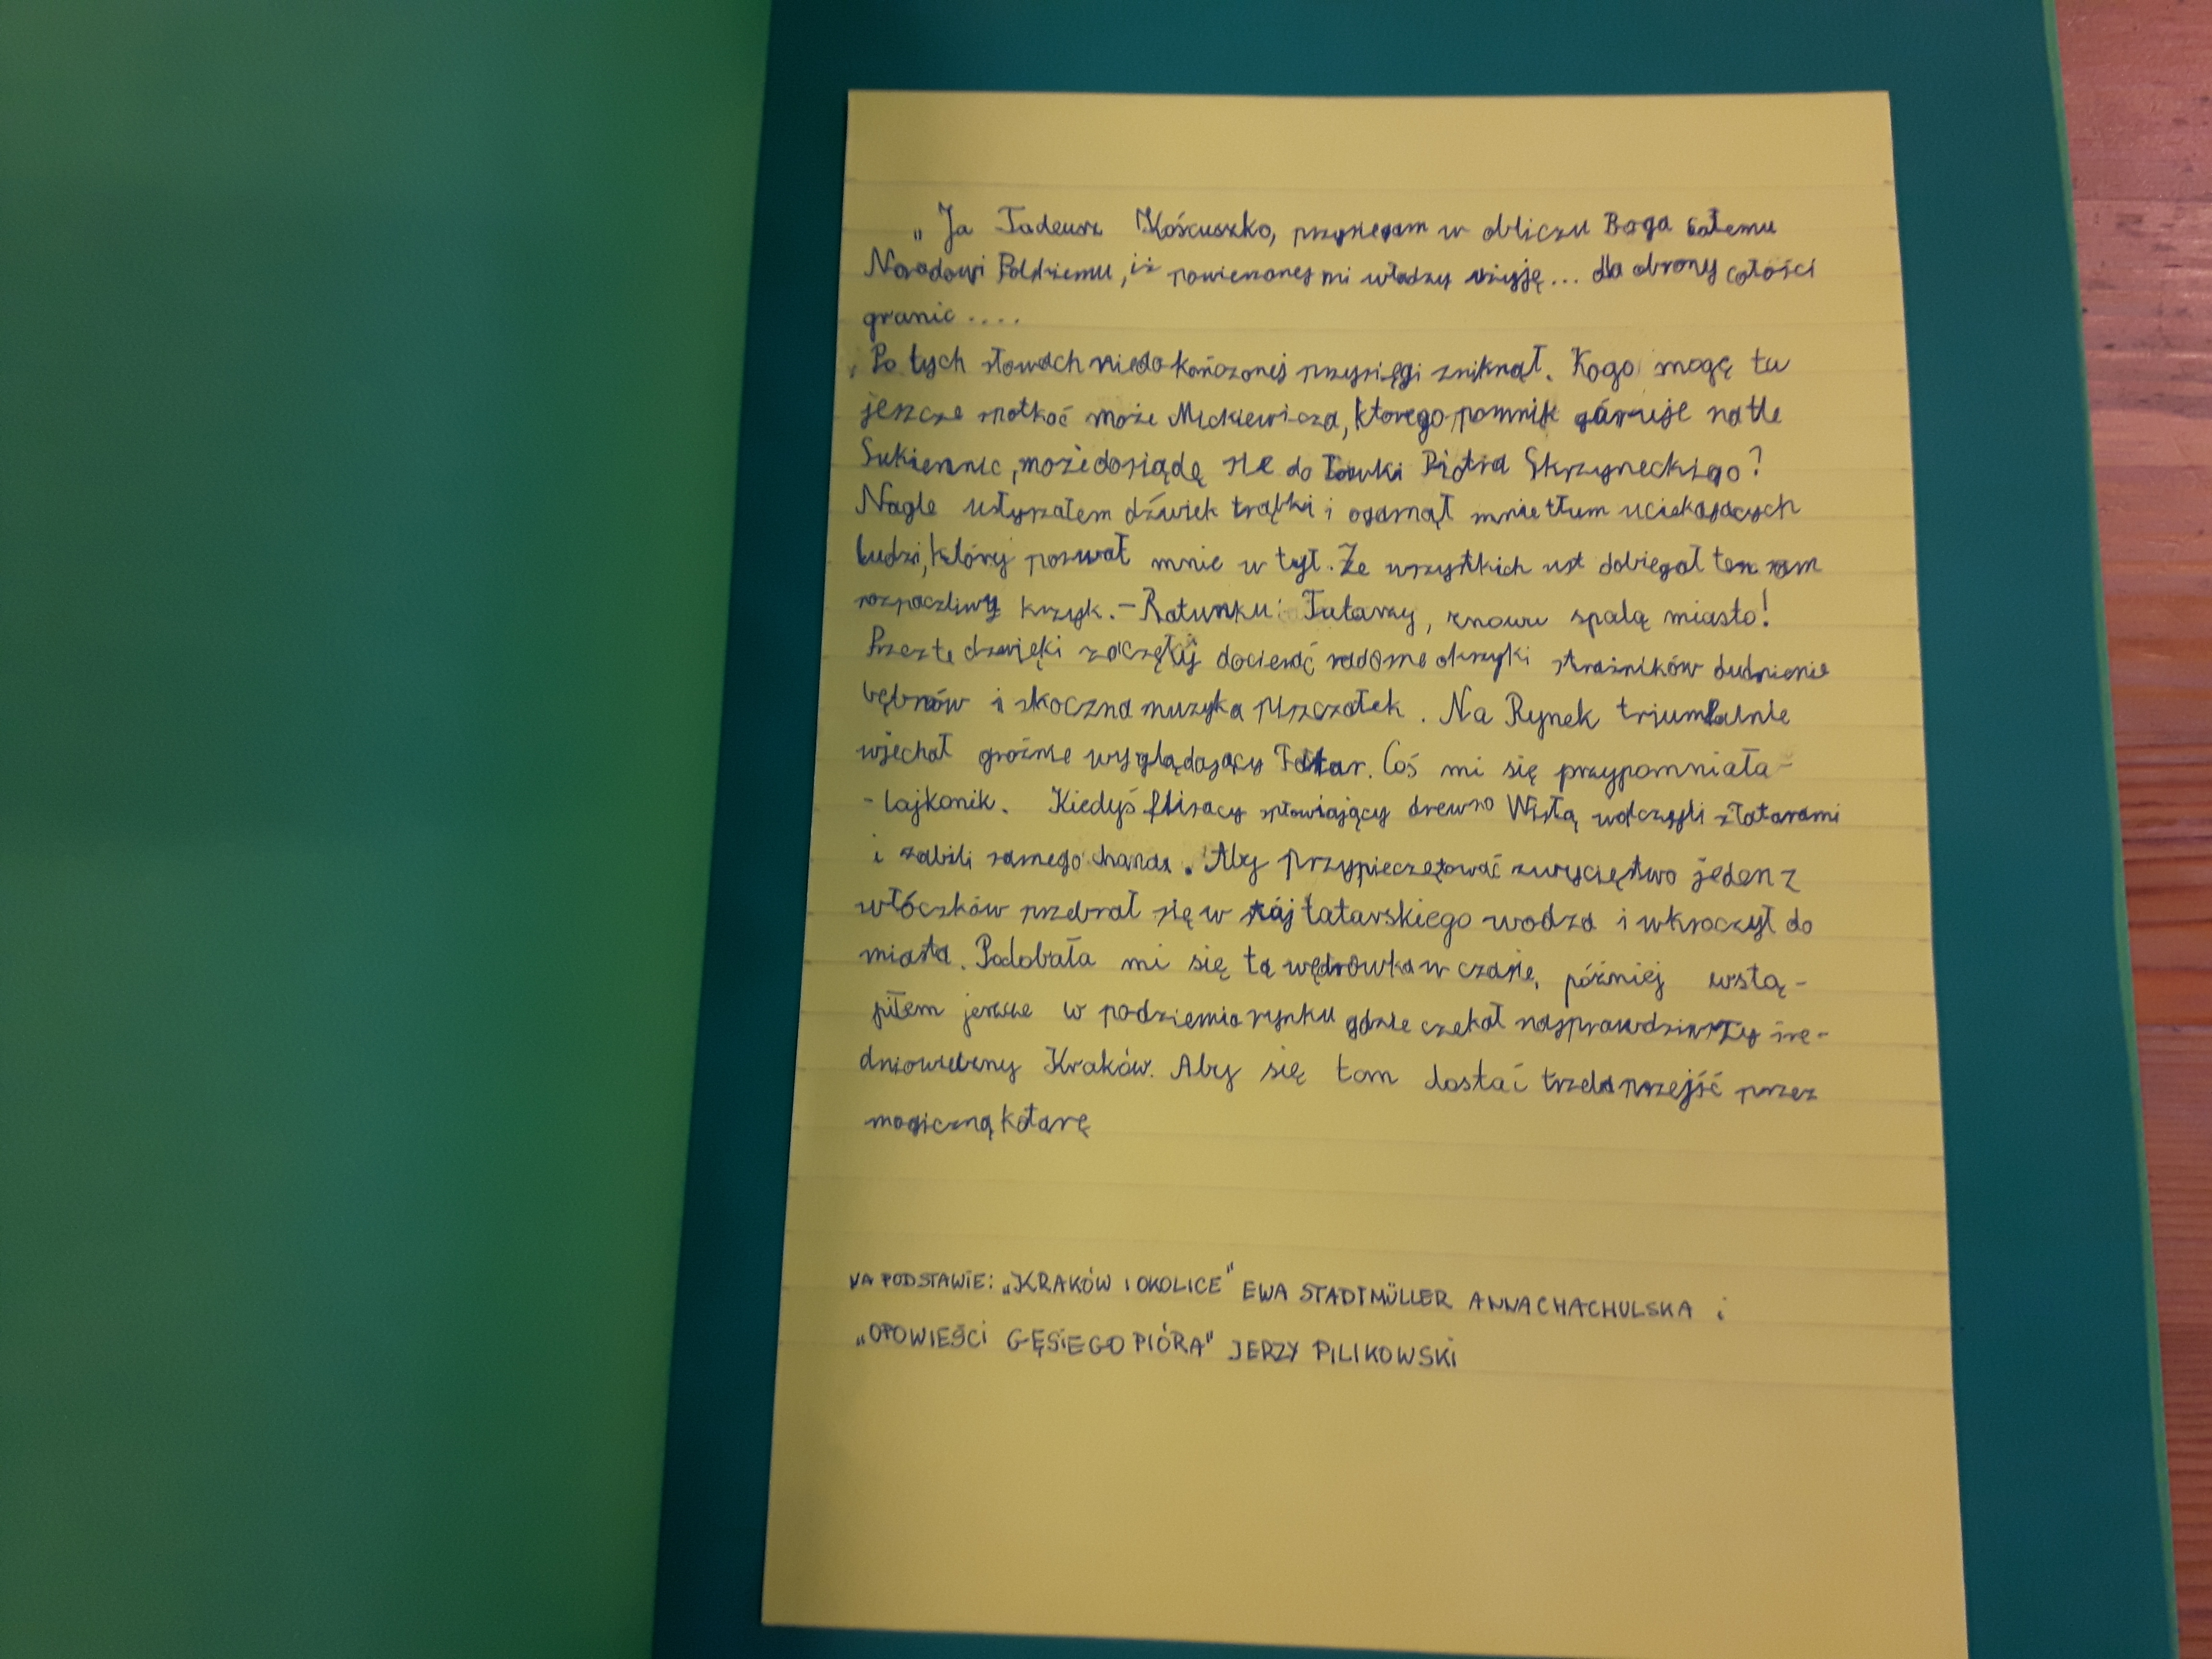 „Ja Tadeusz Kościuszko, przysięgam w obliczu Boga całemu
Narodowi Polskiemu, iż powierzonej mi władzy użyję... dla obrony całości
granic....
Po tych słowach niedokończonej przysięgi zniknął. Kogo mogę tu
jeszcze spotkać może Mickiewicza, ktorego pomnik góruje na tle
Sukiennic, może dosiądę się do ławki Piotra Skrzyneckiego?
Nagle usłyszałem dźwiek trąbki i ogarnął mnie tłum uciekających
ludzi, który porwał mnie w tył. Ze wszystkich ust dobiegał ten sam
rozpaczliwy krzyk. – Ratunku! Tatarzy, znowu spalą miasto!
Przez te dzwięki zaczęły docierać radosne okrzyki strażników dudnienie
bębnów i skoczna muzyka piszczałek. Na Rynek triumfalnie
wjechał groźnie wyglądający Tatar. Coś mi się przypomniała-
- Lajkonik. Kiedyś flisacy spławiający drewno Wisłą walczyli z Tatarami
i zabili samego chana. Aby przypieczętować zwycięstwo jeden z
włóczków przebrał się w stój tatarskiego wodza i wkroczył do
miasta. Podobała mi się ta wędrowka w czasie, później wstą-
piłem jeszcze w podziemia rynku gdzie czekał najprawdziwszy śre-
dniowieczny Kraków. Aby się tam dostać trzeba przejść przez
magiczną kotarę
NA PODSTAWIE: „KRAKÓW I OKOLICE" EWA STADTMÜLLER ANNA CHACHULSKA i
„OPOWIEŚCI GĘSIEGO PIÓRA" JERZY PILIKOWSKI